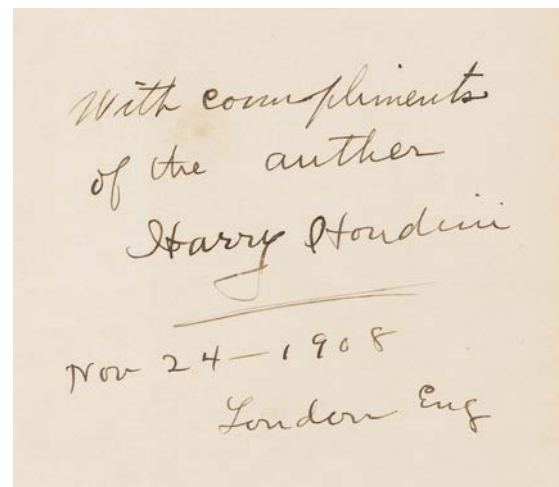 With compliments
of the auther
Harry Houdini
Nov 24 — 1908
London Eng